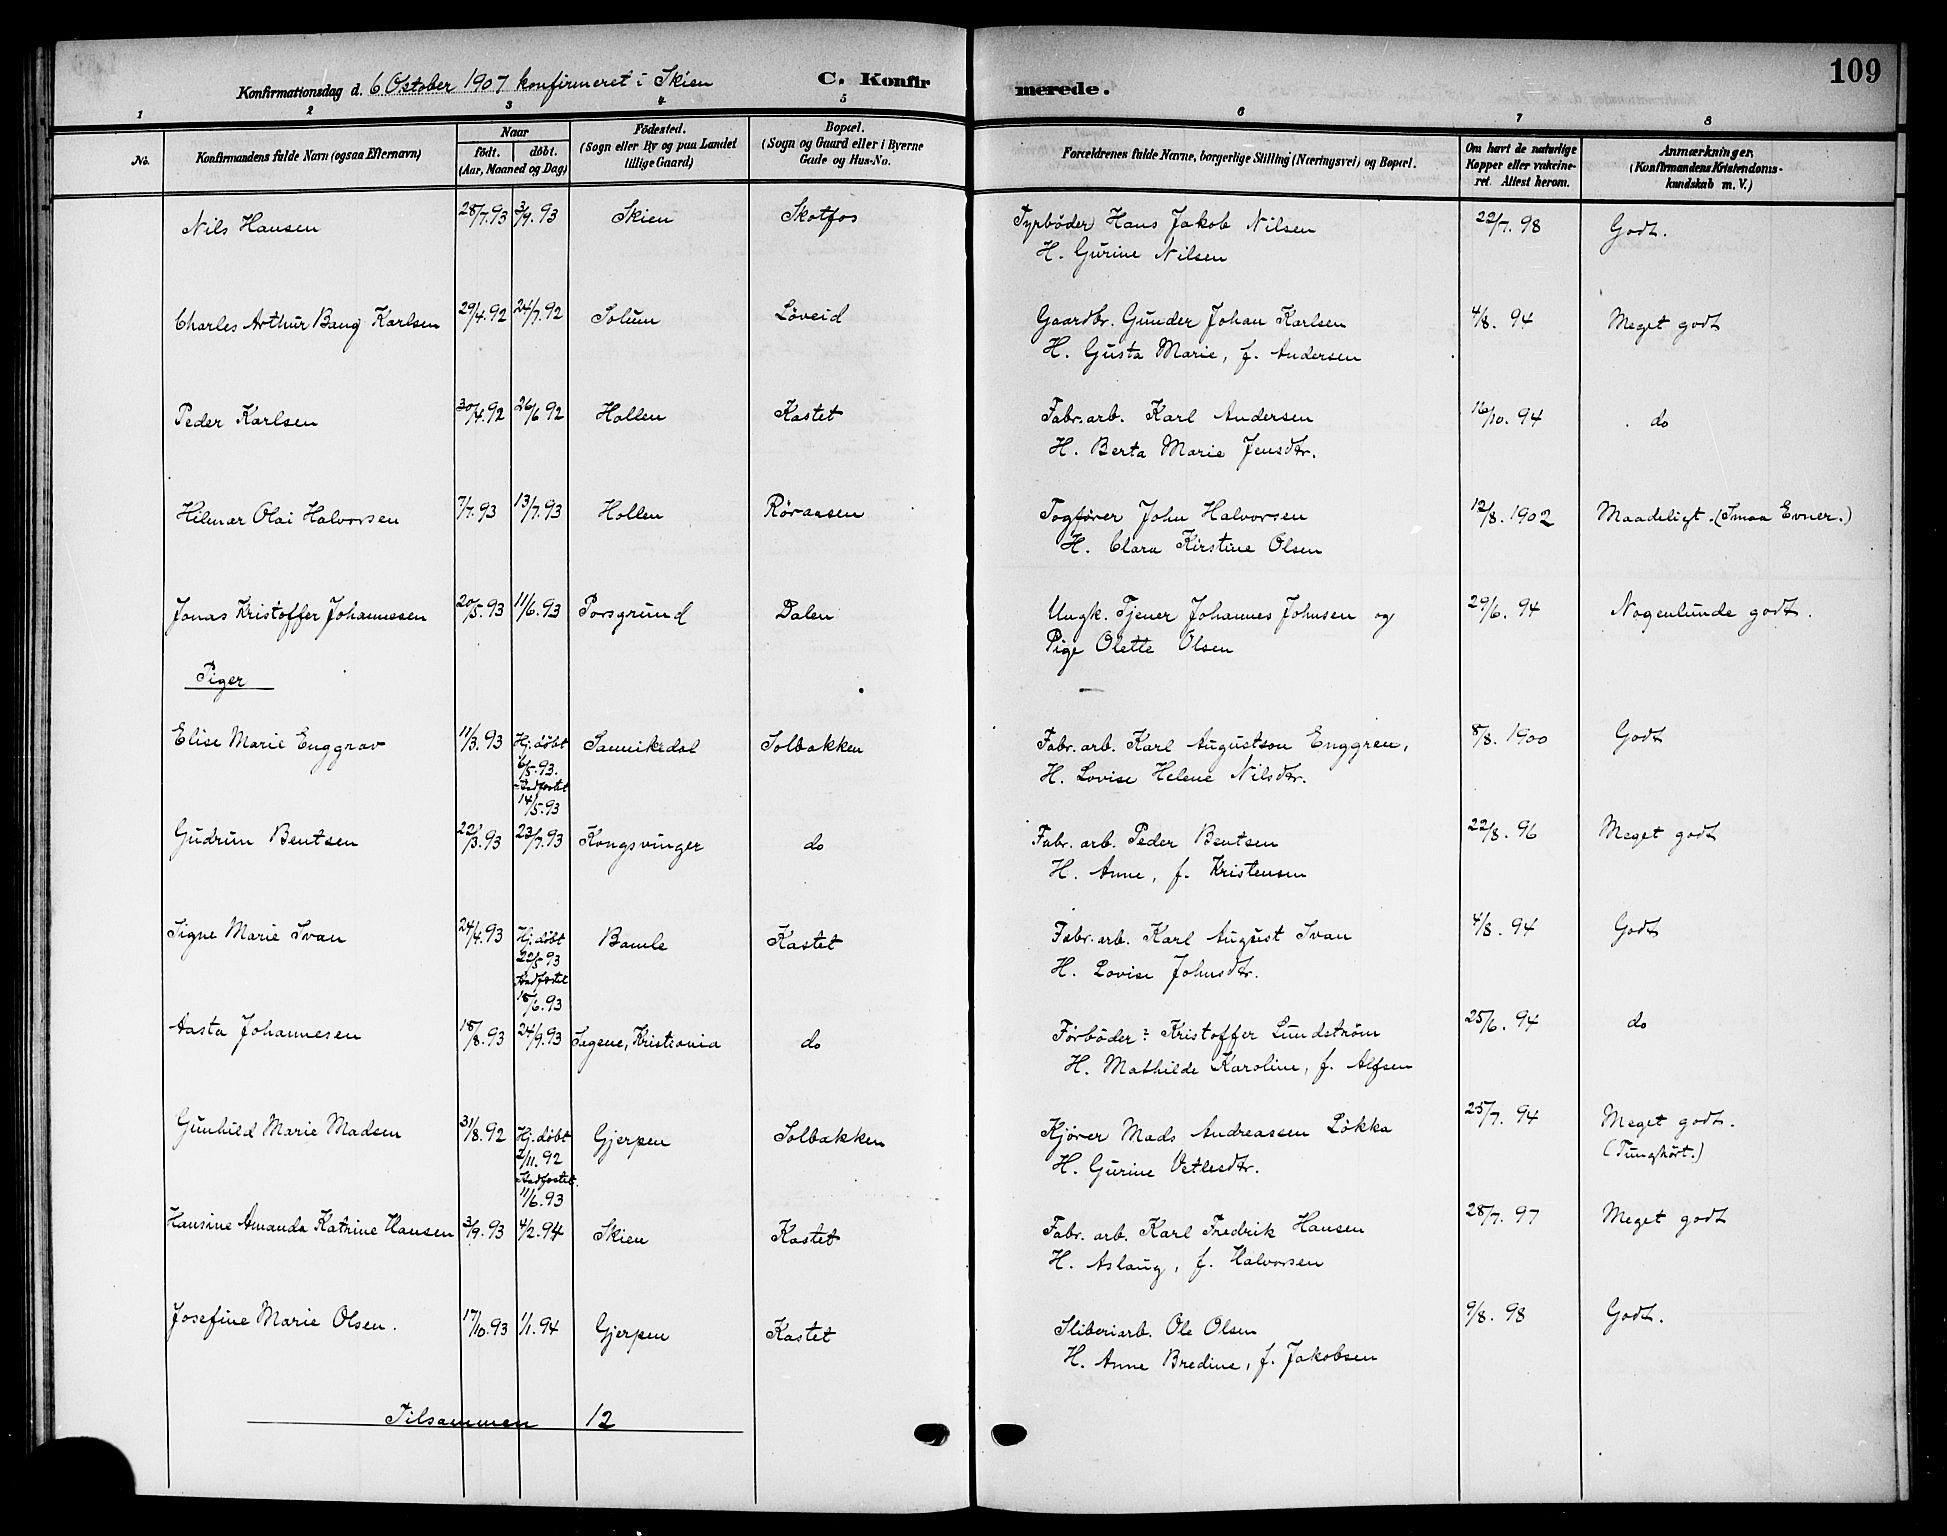 109
Konfirmationsdag d. 6 October 1907 konfirmeret i Skien C. Konfirmerede.
1 2 3 4 5 6 7 8
No. Konfirmandens fulde Navn (ogsaa Efternavn) Naar födt. döbt. (Aar, Maaned og Dag) Födested. (Sogn eller By og paa Landet tillige Gaard) Bopæl. (Sogn og Gaard eller i Byerne Gade og Hus-No. Forældrenes fulde Navne, borgerlige Stilling (Næringsvei) og Bopæl. Om havt de naturlige Kopper eller vakcineret. Attest herom. Anmærkninger. (Konfirmandens Kristendomskundskab m. V.)
Nils Hansen 28/7.93 3/9.93 Skien Skotfos Fyrböder Hans Jakob Nilsen 22/7.98 Godt.
H. Gurine Nilsen
Charles Arthur Bang Karlsen 29/4.92 24/7.92 Solum Löveid Gaardbr. Gunder Johan Karlsen 4/8.94 Meget godt
H. Gusta Marie, f. Andersen
Peder Karlsen 30/4.92 26/6.92 Hollen Kastet Fabr.arb. Karl Andersen 16/10.94 do
H. Berta Marie Jensdtr.
Hilmar Olai Halvorsen 7/7.93 13/7.93 Hollen Röraasen Togförer John Halvorsen 12/8.1902 Maadeligt. (Smaa Evner.)
H. Clara Kirstine Olsen
Jonas Kristoffer Johannesen 20/5.93 11/6.93 Porsgrund Dalen Ungk. Tjener Johannes Johnsen og 29/6.94 Nogenlunde godt.
Pige Olette Olsen
Piger
Elise Marie Enggrav 11/3.93 Hj.döbt Sannikedal Solbakken Fabr.arb. Karl Augustson Enggren, 8/8.1900 Godt
6/5.93. H. Lovise Helene Nilsdtr.
Stadfæstet
14/5.93
Gudrun Bentsen 22/3.93 23/7.93 Kongsvinger do Fabr.arb. Peder Bentsen 22/8.96 Meget godt
H. Anne, f. Kristensen
Signe Marie Svan 24/4.93 Hj.döbt Bamle Kastet Fabr.arb. Karl August Svan 4/8.94 Godt
22/5.93 H. Lovise Johnsdtr.
Stadfæstet
18/6.93
Aasta Johannesen 18/8.93 24/9.93 Sagene, Kristiania do Förböder? Kristoffer Lundström 25/6.94 do
H. Mathilde Karoline, f. Alfsen
Gunhild Marie Madsen 31/8.92 Hj.döbt Gjerpen Solbakken Kjörer Mads Andreassen Lökka 25/7.94 Meget godt.
2/11.92 H. Gurine Vetlesdtr. (Tunghört.)
Stadfæstet.
11/6.93
Hansine Amanda Katrine Hansen 3/9.93 4/2.94 Skien Kastet Fabr.arb. Karl Fredrik Hansen 28/7.97 Meget godt
H. Aslaug, f. Halvorsen
Josefine Marie Olsen. 17/10.93 1/1.94 Gjerpen Kastet Sliberiarb. Ole Olsen 9/8.98 Godt.
H. Anne Bredine, f. Jakobsen
Tilsammen 12